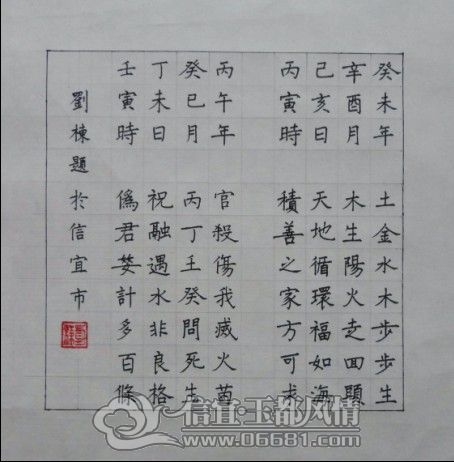 癸未年 土金水木步步生
辛酉月 木生陽火走回頭
己亥日 天地循環福如海
丙寅時 積善之家方可求
丙午年 官殺傷我滅火苗
癸巳月 丙丁壬癸問死生
丁未日 祝融遇水非良格
壬寅時 僞君婪計多百條
劉棟題於信宜市
信宜·玉都风情
www.06681.com